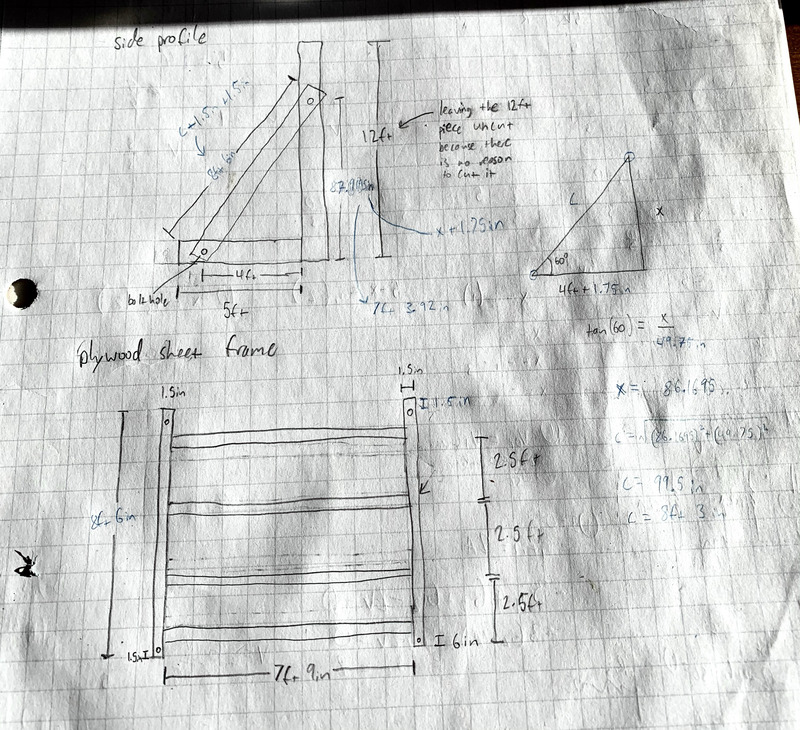 side profile
c+1.5in+1.5in
8ft 6in
12ft
leaving the 12ft
piece uncut
because there
is no reason
to cut it
x+1.75in
7ft 3.92in
bolt hole
4ft
5ft
c
x
60°
4ft + 1.75in
tan(60) = x
49.75in
x = 86.1695
c = 99.5in
c = 8ft 3
plywood sheet frame
1.5in
1.5in
I 1.5in
8ft 6in
2.5ft
2.5ft
2.5ft
1.5in I
I 6in
7ft 9in